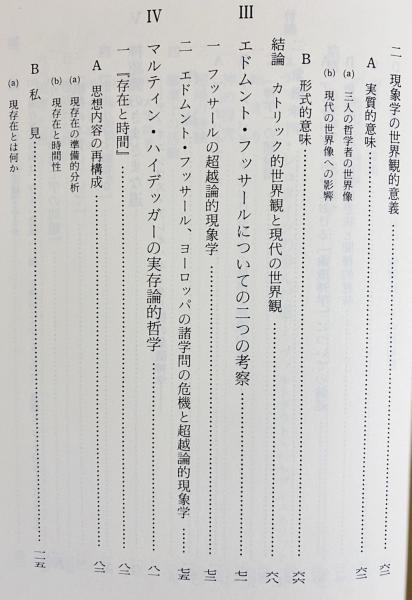 二 現象学の世界観的意義……六二
A 実質的意味……六二
(a) 三人の哲学者の世界像
(b) 現代の世界像への影響
B 形式的意味……六六
結論 カトリック的世界観と現代の世界観……六八
III エドムント・フッサールについての二つの考察……七一
一 フッサールの超越論的現象学……七三
二 エドムント・フッサール、ヨーロッパの諸学問の危機と超越論的現象学……七五
IV マルティン・ハイデッガーの実存論的哲学……八一
一 『存在と時間』……八二
A 思想内容の再構成……八二
(a) 現存在の準備的分析
(b) 現存在と時間性
B 私見……一一五
(a) 現存在とは何か